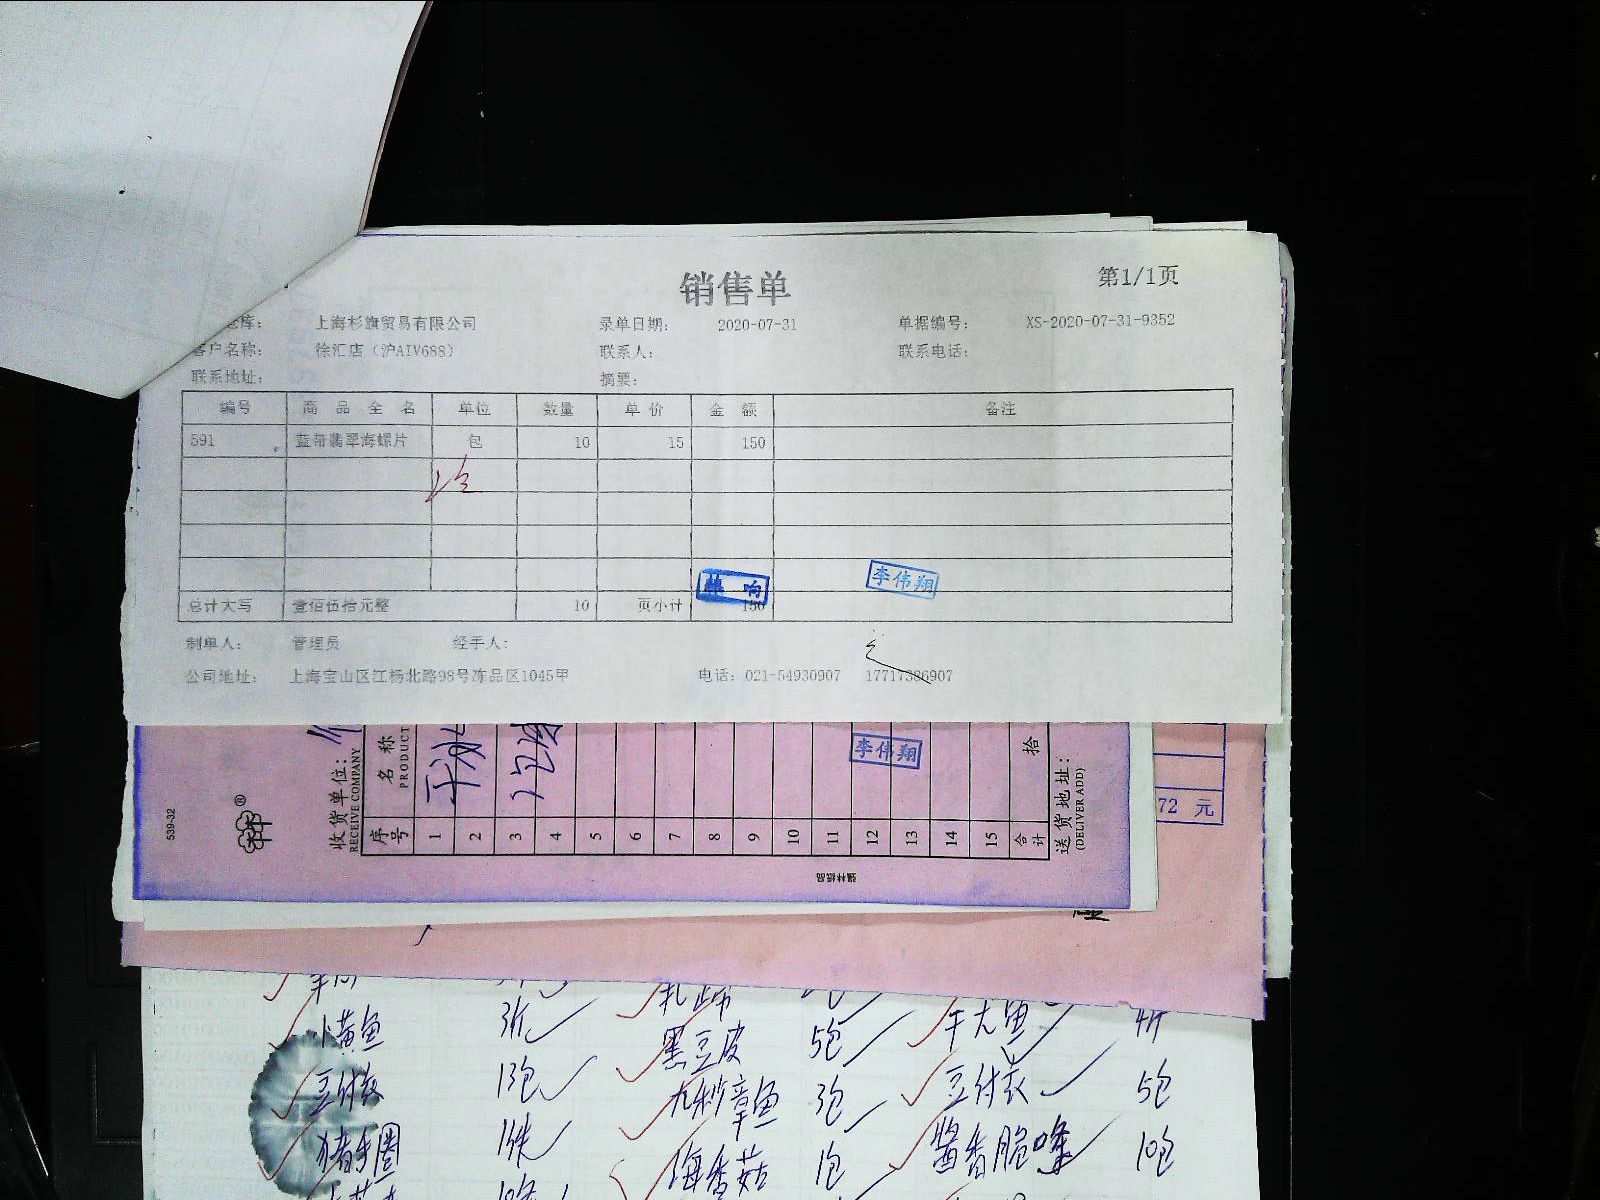 销售单
第1/1页
仓库： 上海杉旗贸易有限公司 录单日期： 2020-07-31 单据编号： XS-2020-07-31-9352
客户名称： 徐汇店（沪AIV688） 联系人： 联系电话：
联系地址： 摘要：
编号 商品全名 单位 数量 单价 金额 备注
591 蓝带翡翠海螺片 包 10 15 150
李伟翔
总计大写 壹佰伍拾元整 10 页小计 150
制单人： 管理员 经手人：
公司地址： 上海宝山区江杨北路98号冻品区1045甲 电话：021-54930907 17717386907
539-32
收货单位：
RECEIVE COMPANY
序号 名称
PRODUCT
1 2 3 4 5 6 7 8 9 10 11 12 13 14 15 合计
拾
李伟翔
送货地址：
(DELIVER ADD)
72 元
小黄鱼 3斤 黑豆皮 5包
豆付衣 13包 3包 豆付衣 5包
猪手圈 1件 海香菇 1包 10包